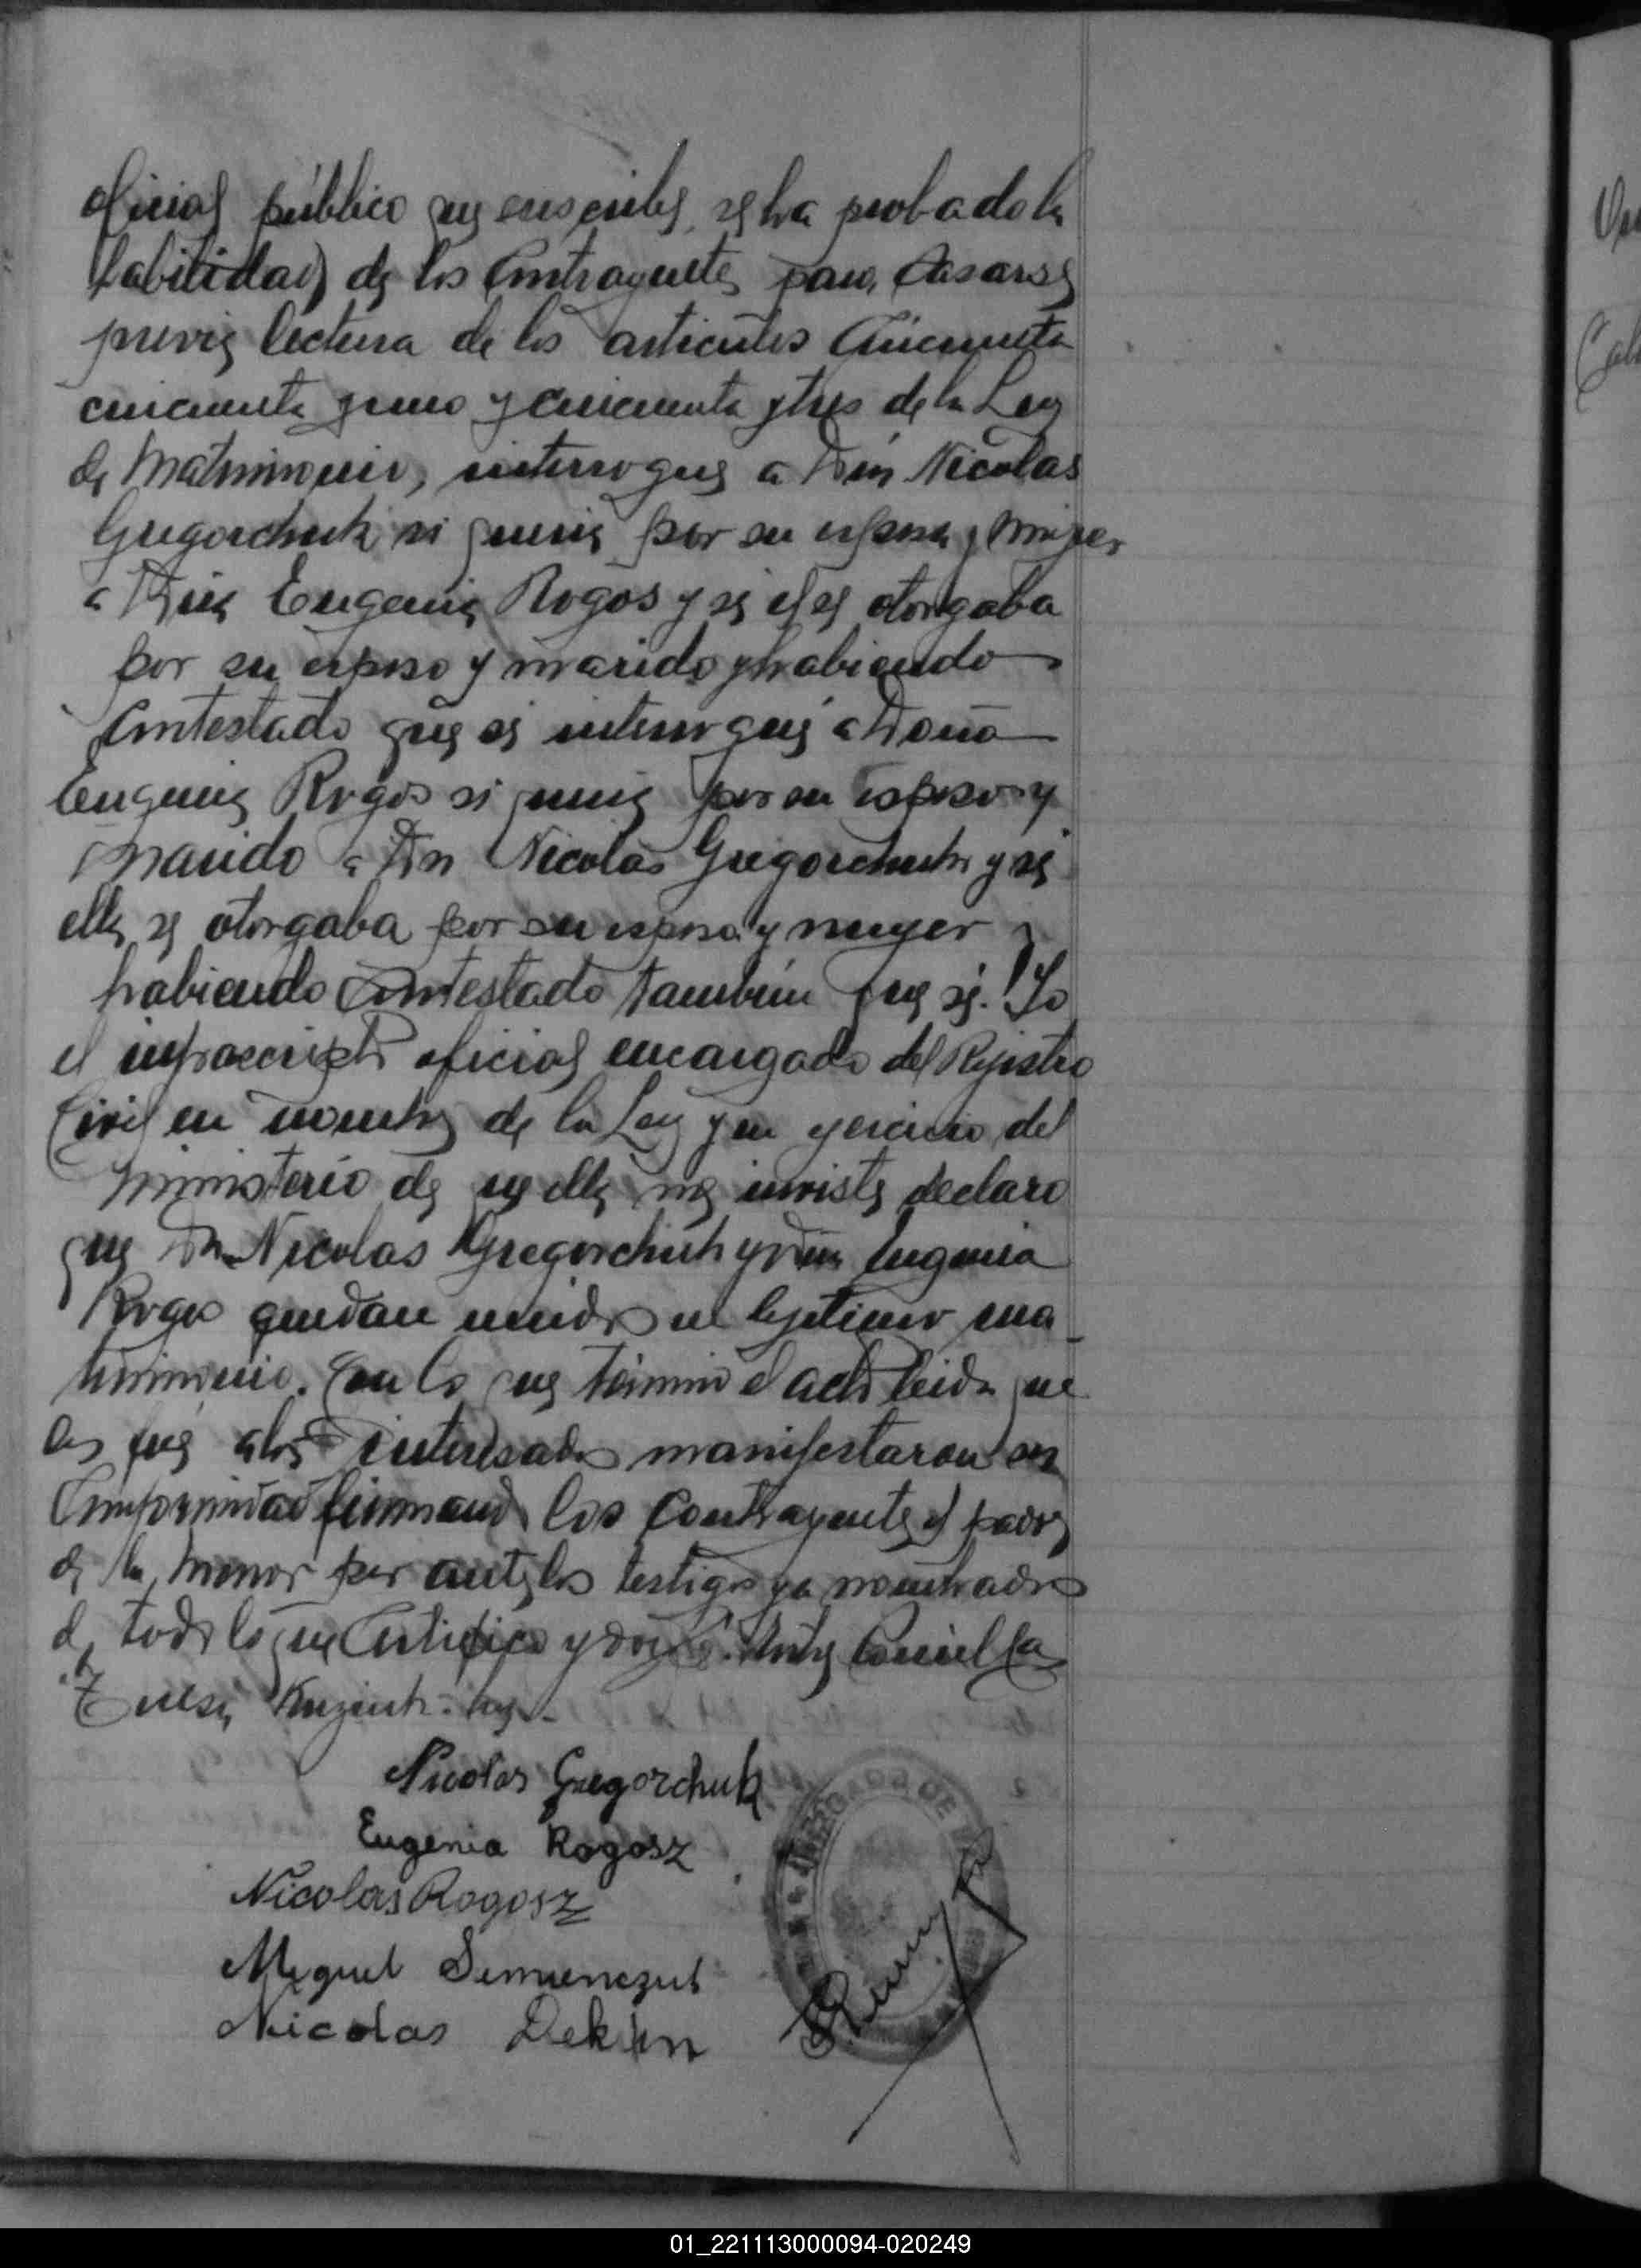 oficial público que suscribe, se ha probado la
habilidad de los Contrayentes para Casarse
previa lectura de los articulos Cincuenta
cincuenta y uno y cincuenta y tres de la Ley
de Matrimonio, interrogue a Don Nicolas
Gregorchuk si queria por su esposa y mujer
a Doña Eugenia Rogos y si el se otorgaba
por su esposo y marido y habiendo
Contestado que si interrogué a Doña
Eugenia Rogos si queria por su esposo y
marido a Don Nicolas Gregorchuk y si
ella se otorgaba por su esposa y mujer y
habiendo Contestado también que si. Yo
el infrascripto oficial encargado del Rejistro
Civil en nombre de la Ley y en ejercicio del
ministerio de que ella me inviste declaro
que Don Nicolas Gregorchuk y Doña Eugenia
Rogos quedan unidos en lejitimo ma-
trimonio. Con lo que terminó el acto leida que
les fué a los interesados manifestaron su
Conformidad firmando los Contrayentes el padre
de la menor por ante los testigos ya nombrados
de todo lo que Certifico y doy fé.
Nicolas Gregorchuk
Eugenia Rogosz
Nicolas Rogosz
Miguel
Nicolas
ENCARGADO DE
01_221113000094-020249